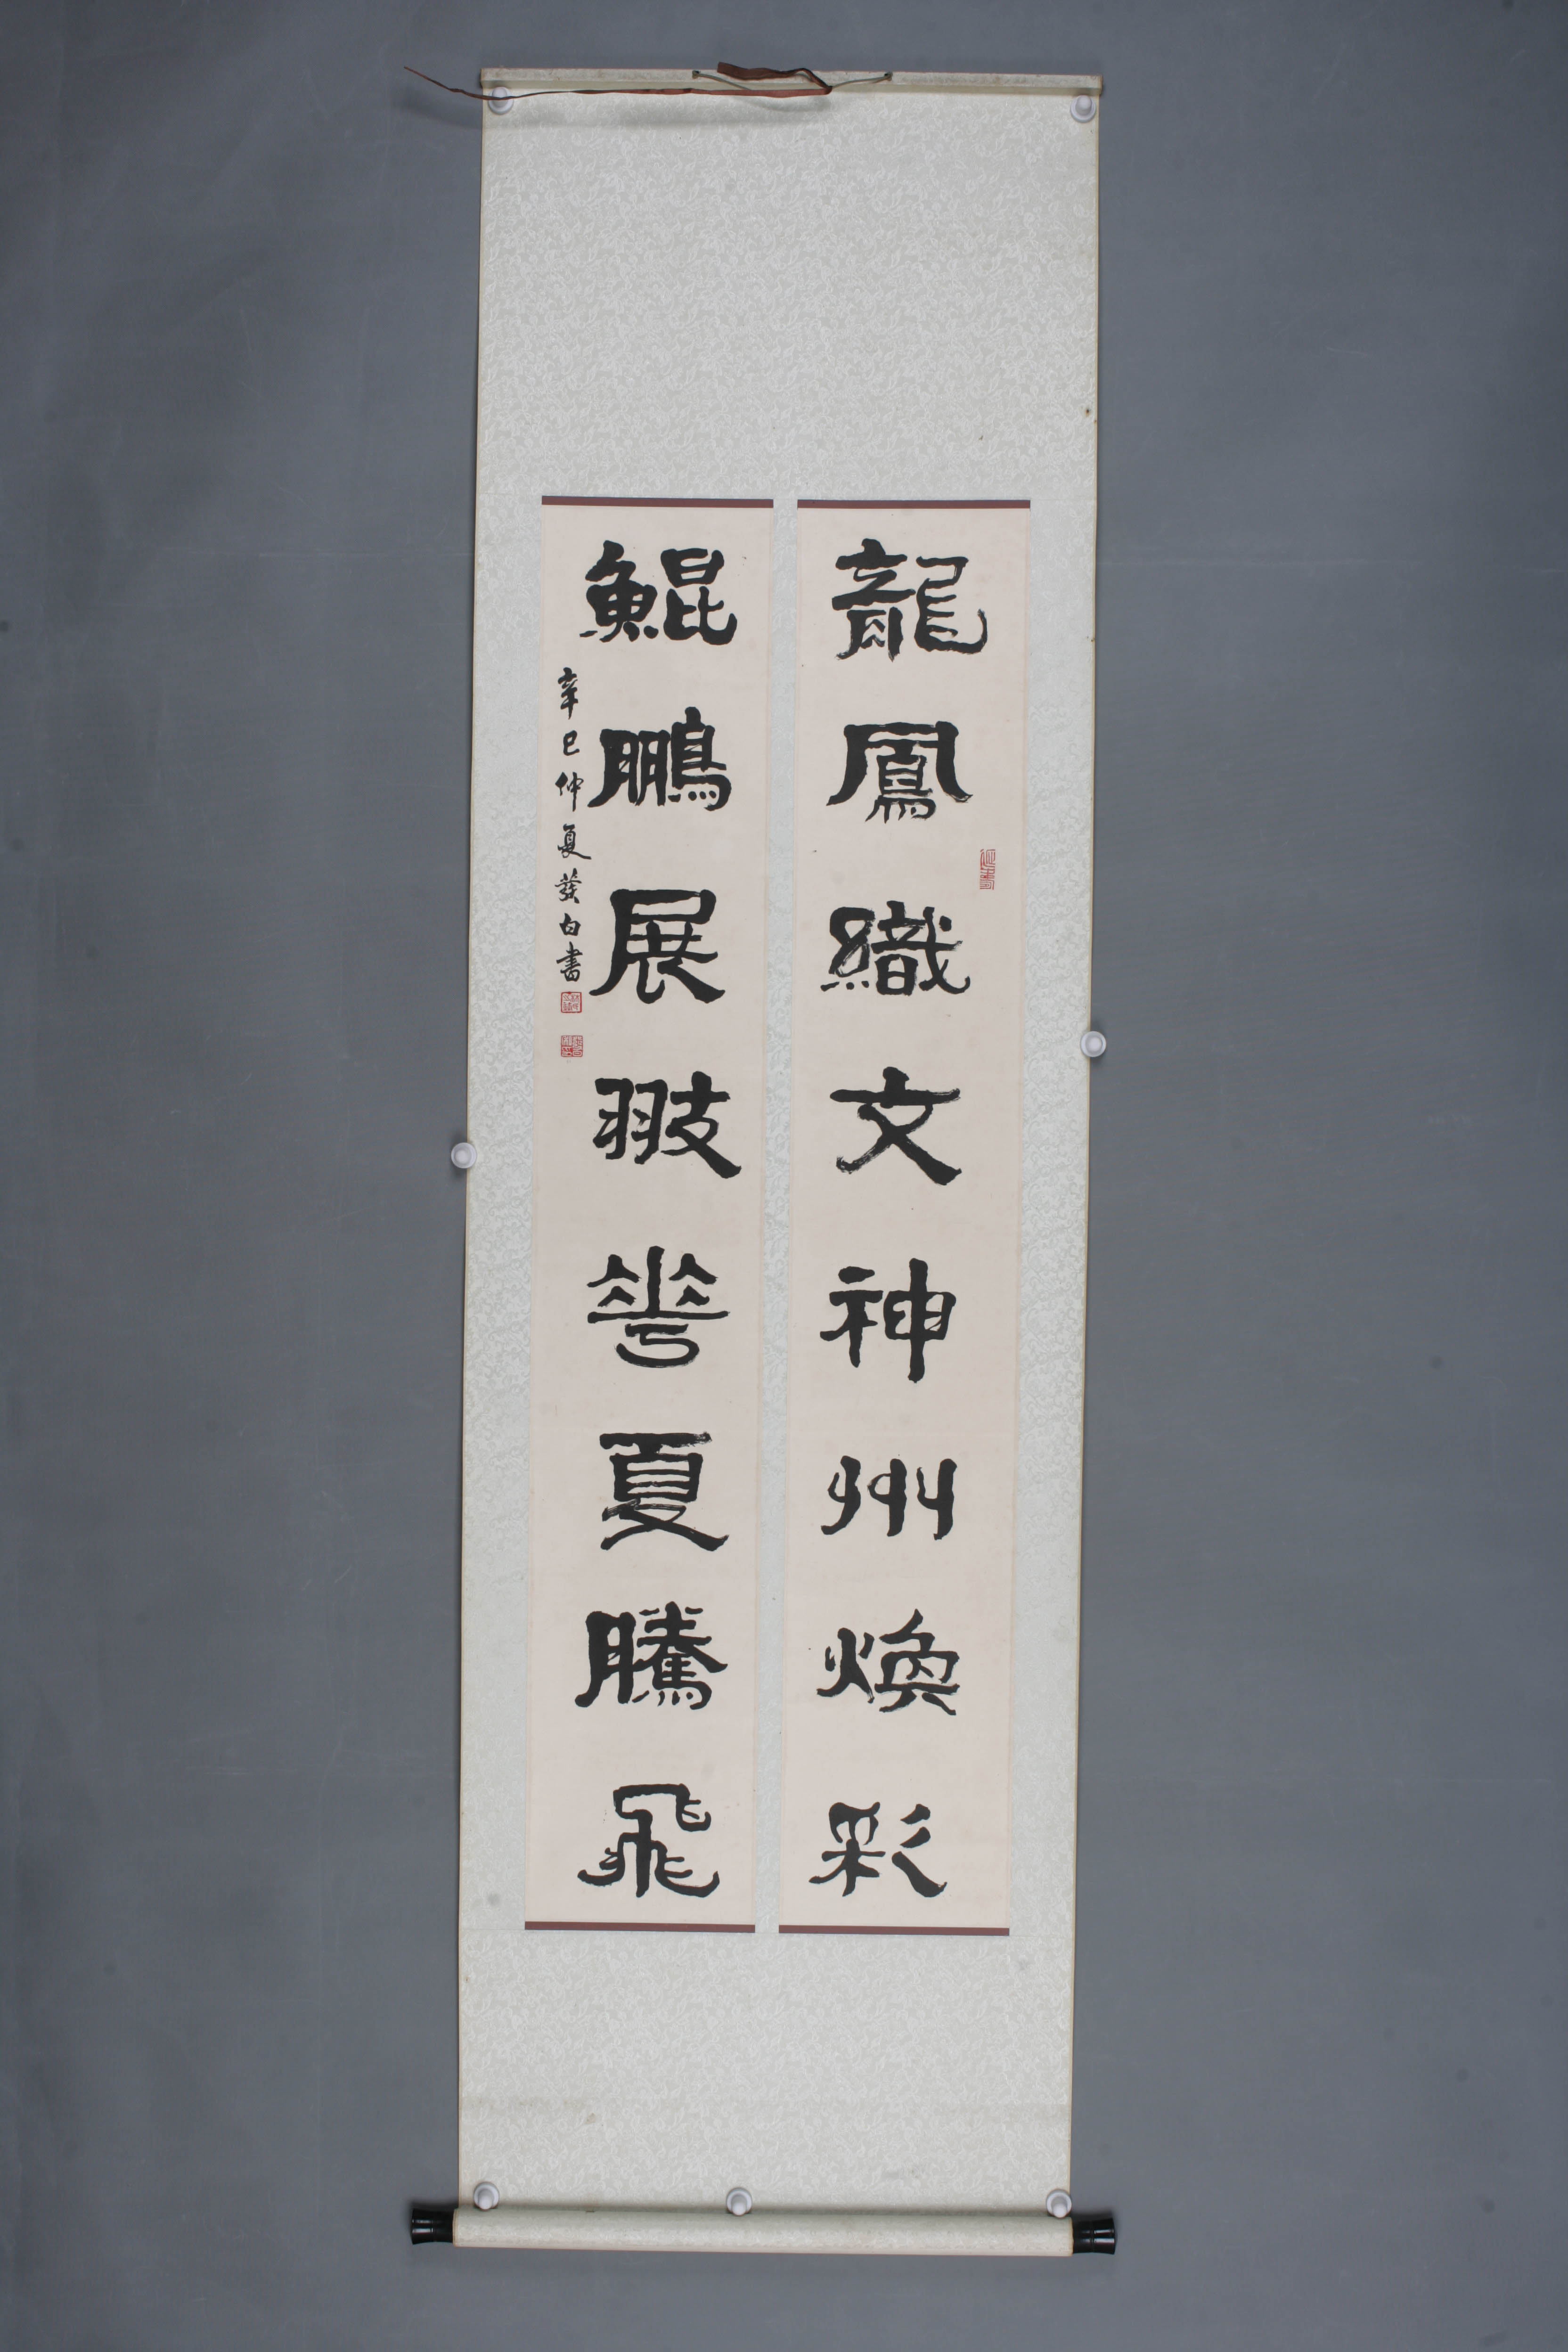 龍鳳織文神州煥彩
鯤鵬展翅花夏騰飛
辛巳仲夏癸白書